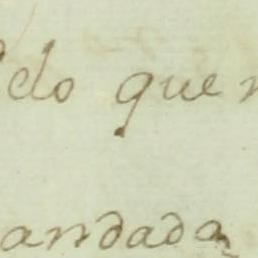 do que
andada